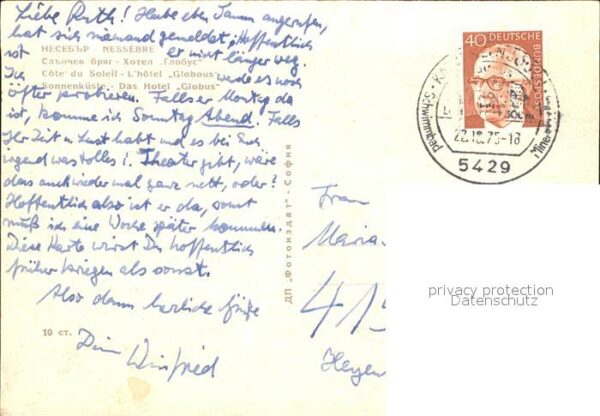 Liebe Ruth! Habe eben Tamm angerufen,
hat sich niemand gemeldet. Hoffentlich
ist er nicht länger weg.
НЕСЕБЪР NESSÈBRE
Слънчев бряг - Хотел „Глобус"
Côte du Soleil - L'hôtel „Globus"
Sonnenküste - Das Hotel „Globus"
Ich werde es noch
öfter probieren. Falls er Montag da
ist, komme ich Sonntag Abend. Falls
Ihr Zeit u. Lust habt und es bei Euch
irgend was tolles i. Theater gibt, wäre
das auch wieder mal ganz nett, oder?
Hoffentlich also ist er da, sonst
muß ich eine Woche später kommen.
Diese Karte wirst Du hoffentlich
früher kriegen als sonst.
Also dann herzliche Grüße
Dein Winfried
10 ст.
ДП „Фотоиздат" - София
40 DEUTSCHE
BUNDESPOST
5429
Frau
Maria-
privacy protection
Datenschutz